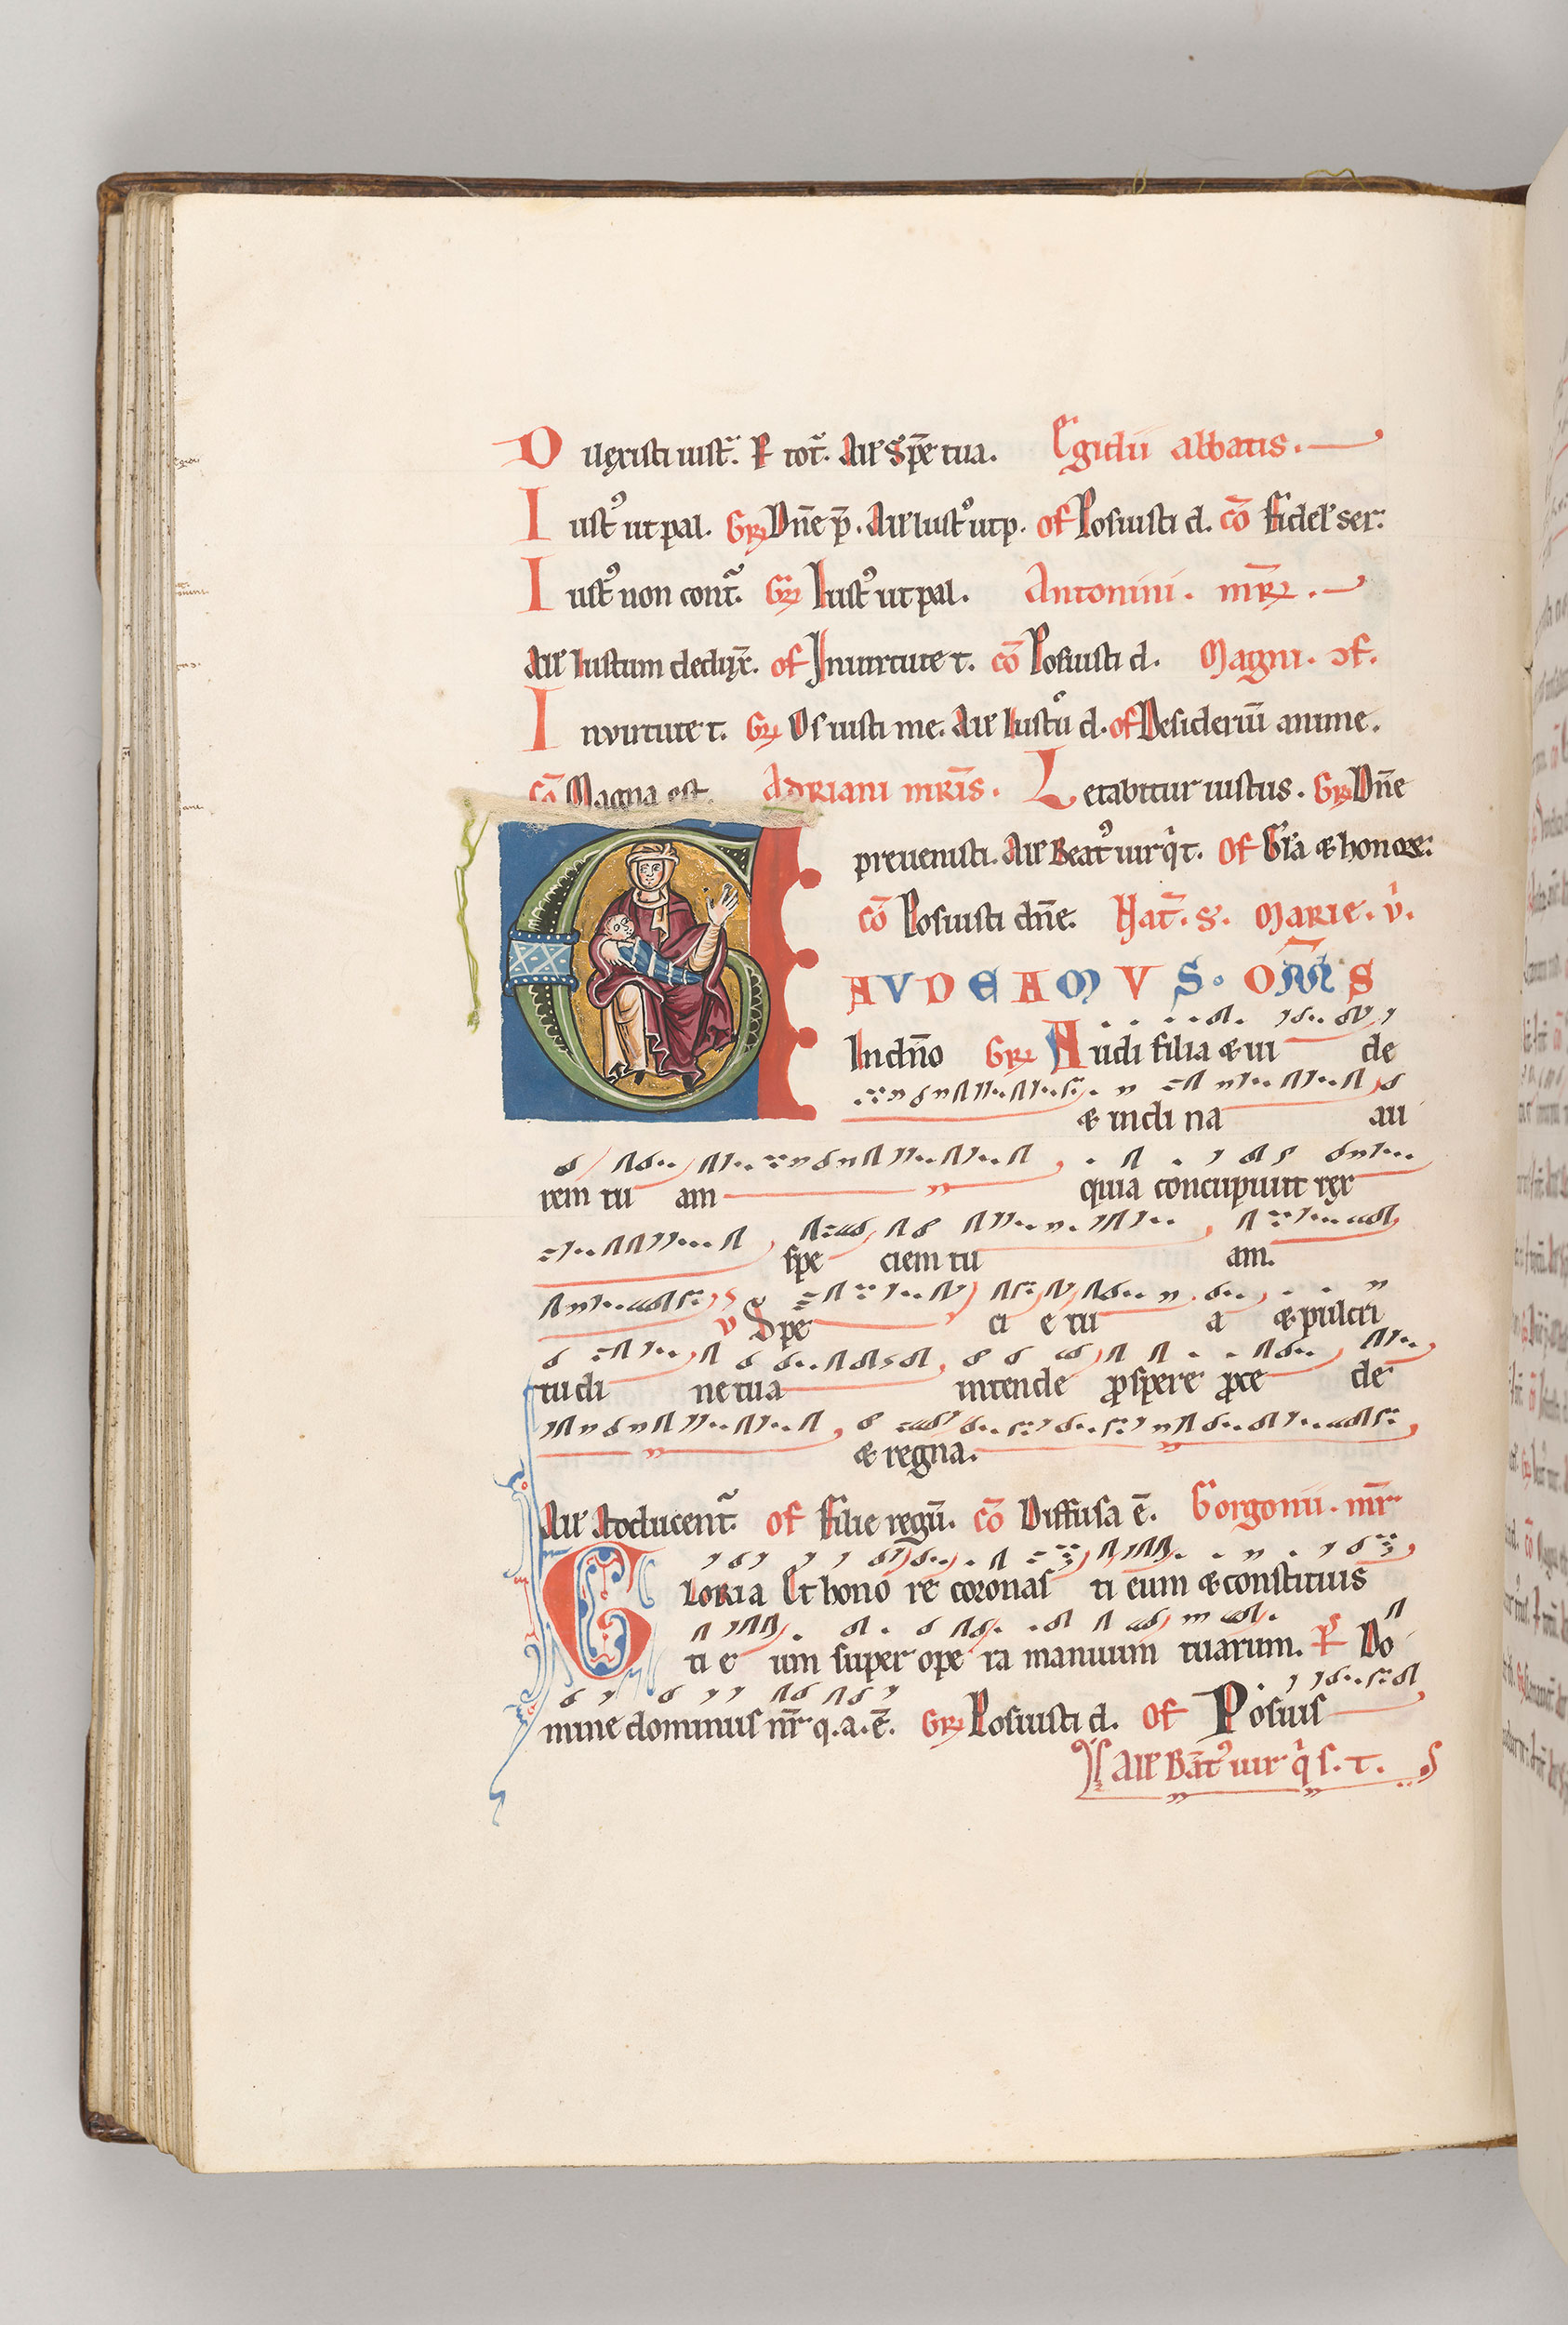 Dilexisti iust. P tot. All Spē tua. Egidii abbatis.
Iust⁹ ut pal. Gr̄ Dn̄e p̄. All Iust⁹ ut p. Of Posuisti d. Cō Fidel' ser.
Iust⁹ non cont̄. Gr̄ Iust⁹ ut pal. Antonini. mr̄.
All Iustum dedux̄. Of In uirtute t. Cō Posuisti d. Magni. ɔf.
In virtute t. Gr̄ Os iusti me. All Iustū d. Of Desideriū anime.
Cō Magna est. Adriani mr̄is. Letabitur iustus. Gr̄ Dn̄e
preuenisti. All Beat⁹ uir q̇ t. Of Gl̄a & honore.
Cō Posuisti dn̄e. Nat̄. S. Marie. v̇.
GAVDEAMVS. OM̄NS
In dn̄o Gr̄ Audi filia & ui de
& inclina au
rem tu am quia concupiuit rex
spe ciem tu am.
V Spe ci e tu a & pulcri
tudi ne tua intende prospere proce de
& regna.
All Adducent̄. Of Filie regū. Cō Diffusa ē. Gorgonii. mr̄
GLORIA Et hono re coronas ti eum & constituis
ti e um super ope ra manuum tuarum. P̄ Do
mine dominus nr̄ q. a. ē. Gr̄ Posuisti d. Of Posuis
All Bāt⁹ uir q̇ s. t.